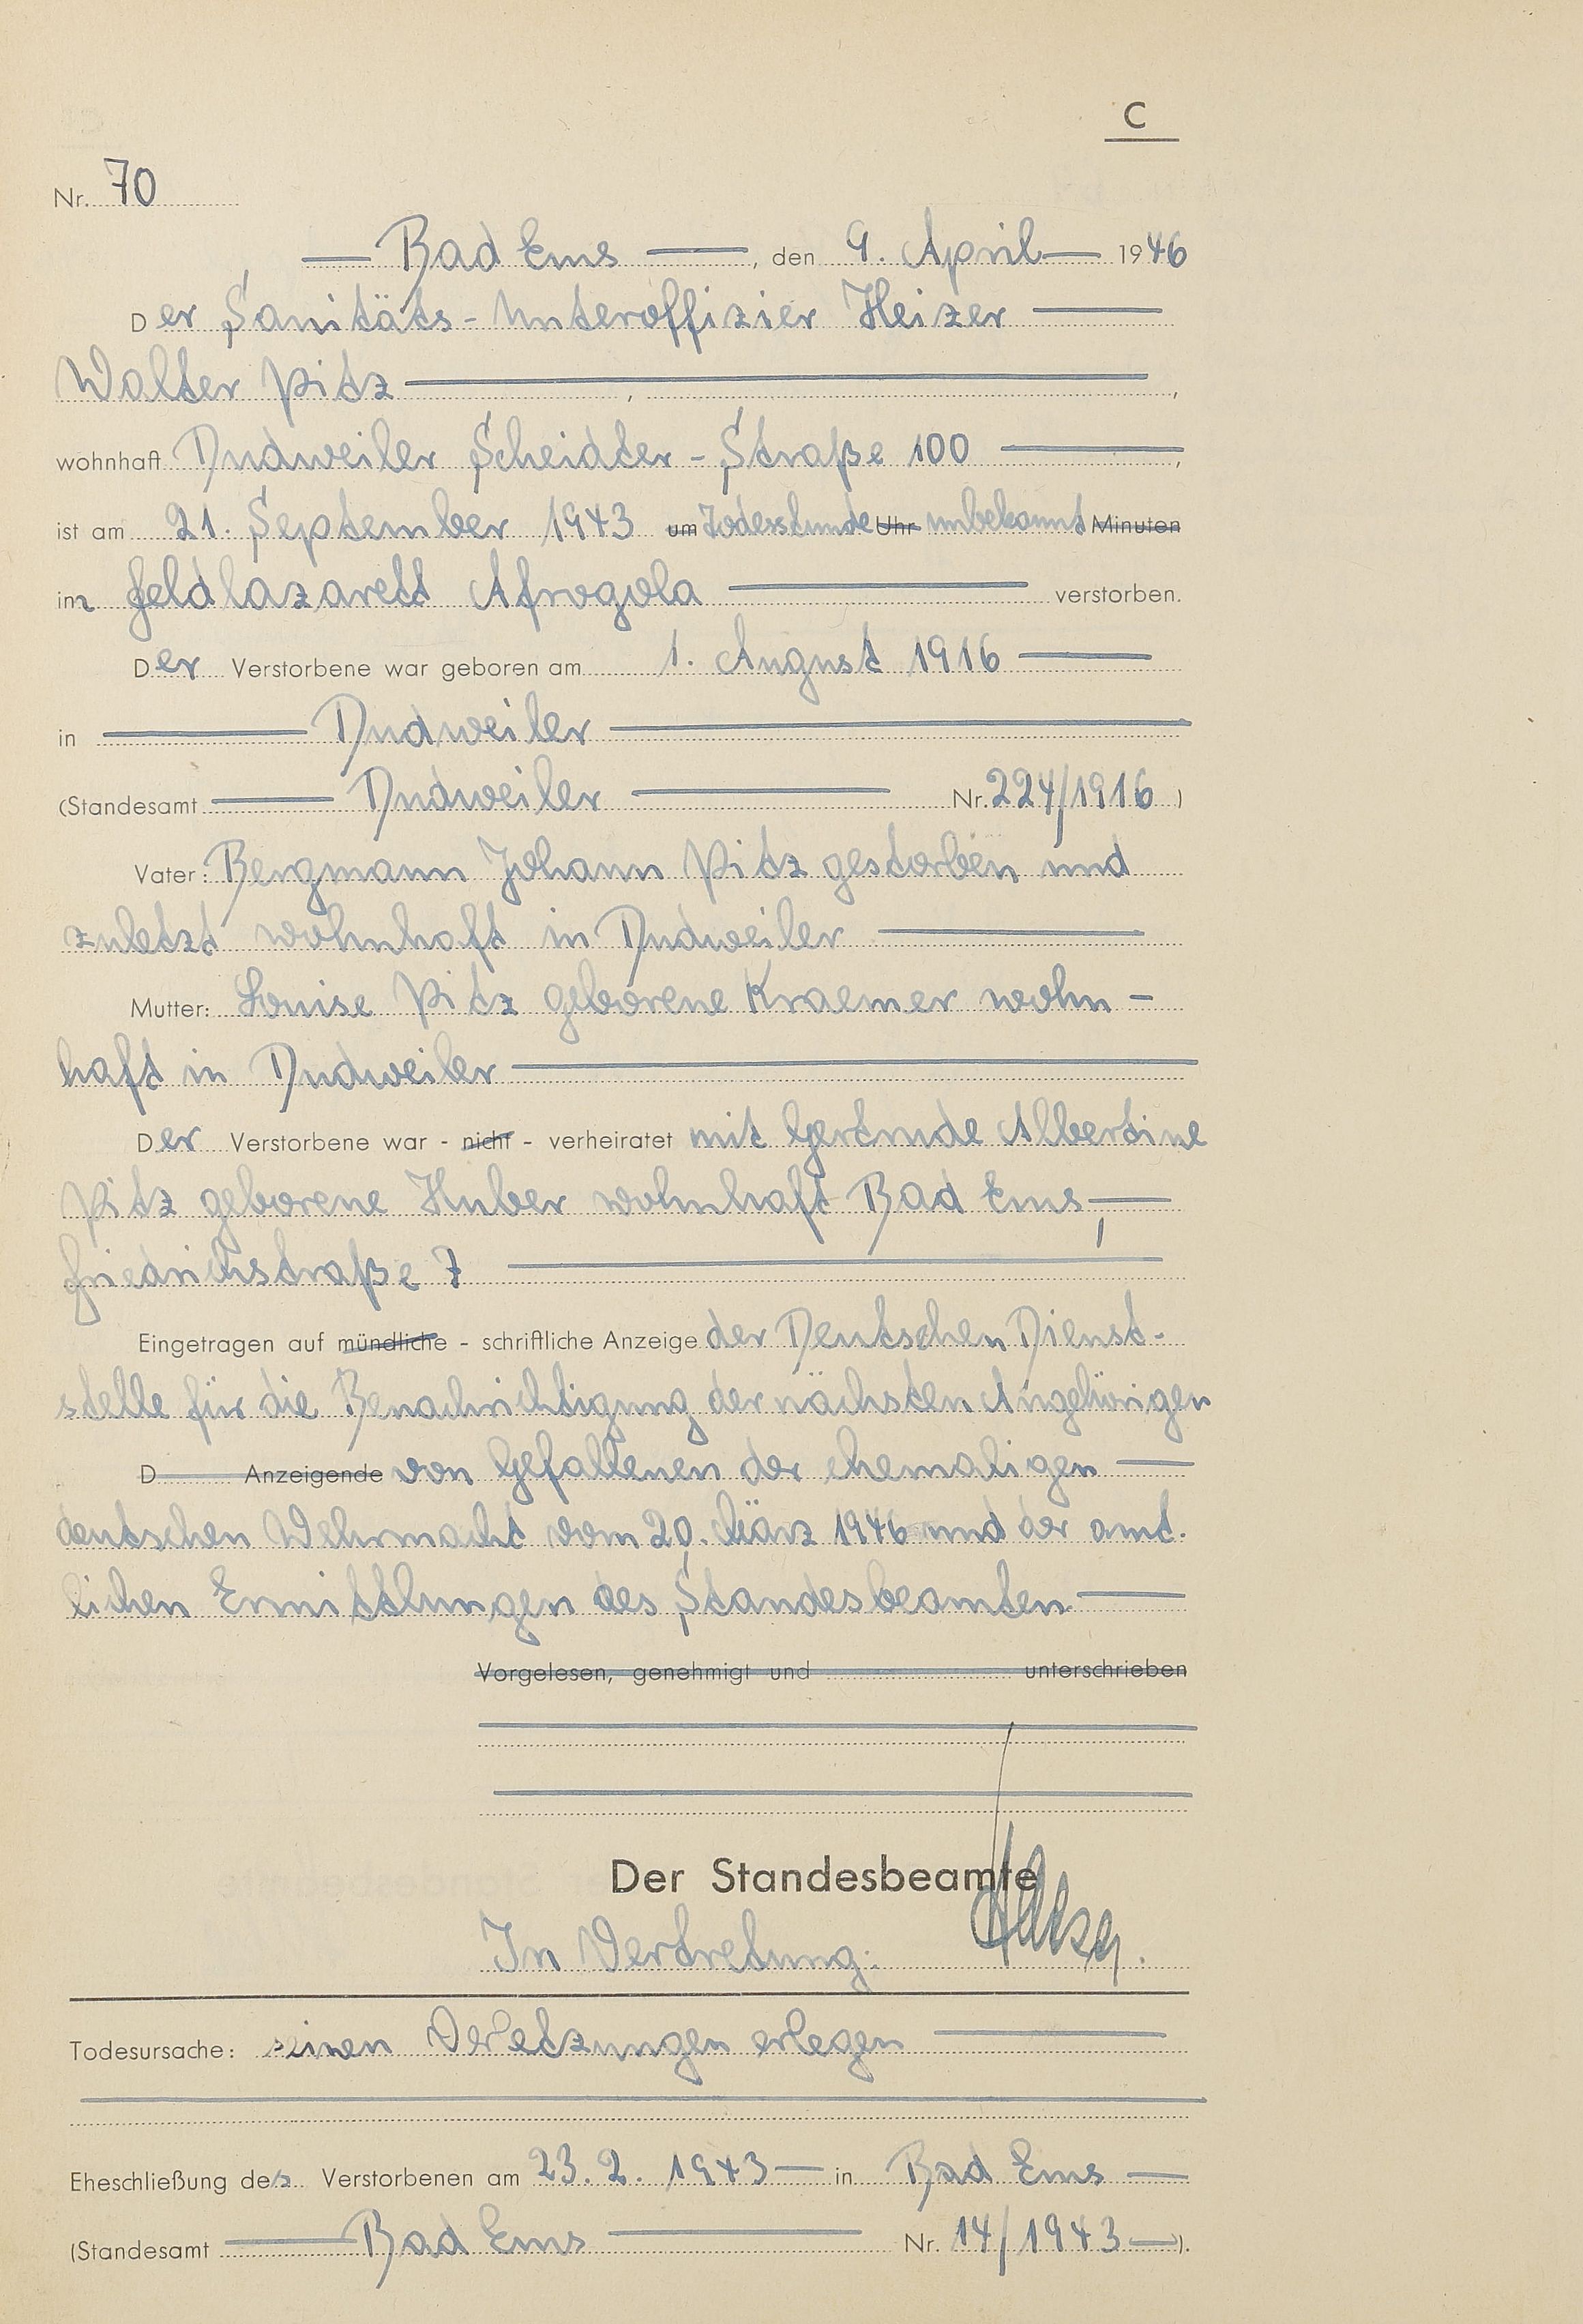 C
Nr. 70
Bad Ems, den 9. April 1946
Der Sanitäts-Unteroffizier Heizer
Walter Pitz
wohnhaft Dudweiler Scheidter-Straße 100
ist am 21. September 1943 um Todesstunde Uhr unbekannt Minuten
im Feldlazarett Afragola verstorben.
Der Verstorbene war geboren am 1. August 1916
in Dudweiler
(Standesamt Dudweiler Nr. 224/1916)
Vater: Bergmann Johann Pitz gestorben und
zuletzt wohnhaft in Dudweiler
Mutter: Louise Pitz geborene Kraemer wohn-
haft in Dudweiler
Der Verstorbene war - nicht - verheiratet mit Gertrude Albertine
Pitz geborene Huber wohnhaft Bad Ems,
Friedrichstraße 7
Eingetragen auf mündliche - schriftliche Anzeige der Deutschen Dienst-
stelle für die Benachrichtigung der nächsten Angehörigen
D Anzeigende von Gefallenen der ehemaligen
deutschen Wehrmacht vom 20. März 1946 und der amt-
lichen Ermittlungen des Standesbeamten
Vorgelesen, genehmigt und unterschrieben
Der Standesbeamte
In Vertretung:
Todesursache: seinen Verletzungen erlegen
Eheschließung des Verstorbenen am 23.2.1943 in Bad Ems
(Standesamt Bad Ems Nr. 14/1943).